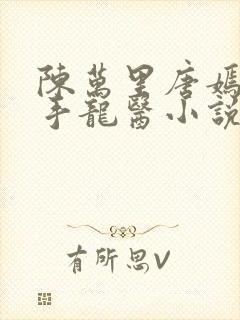 陳萬里唐嫣
手龍醫小說
有所思V